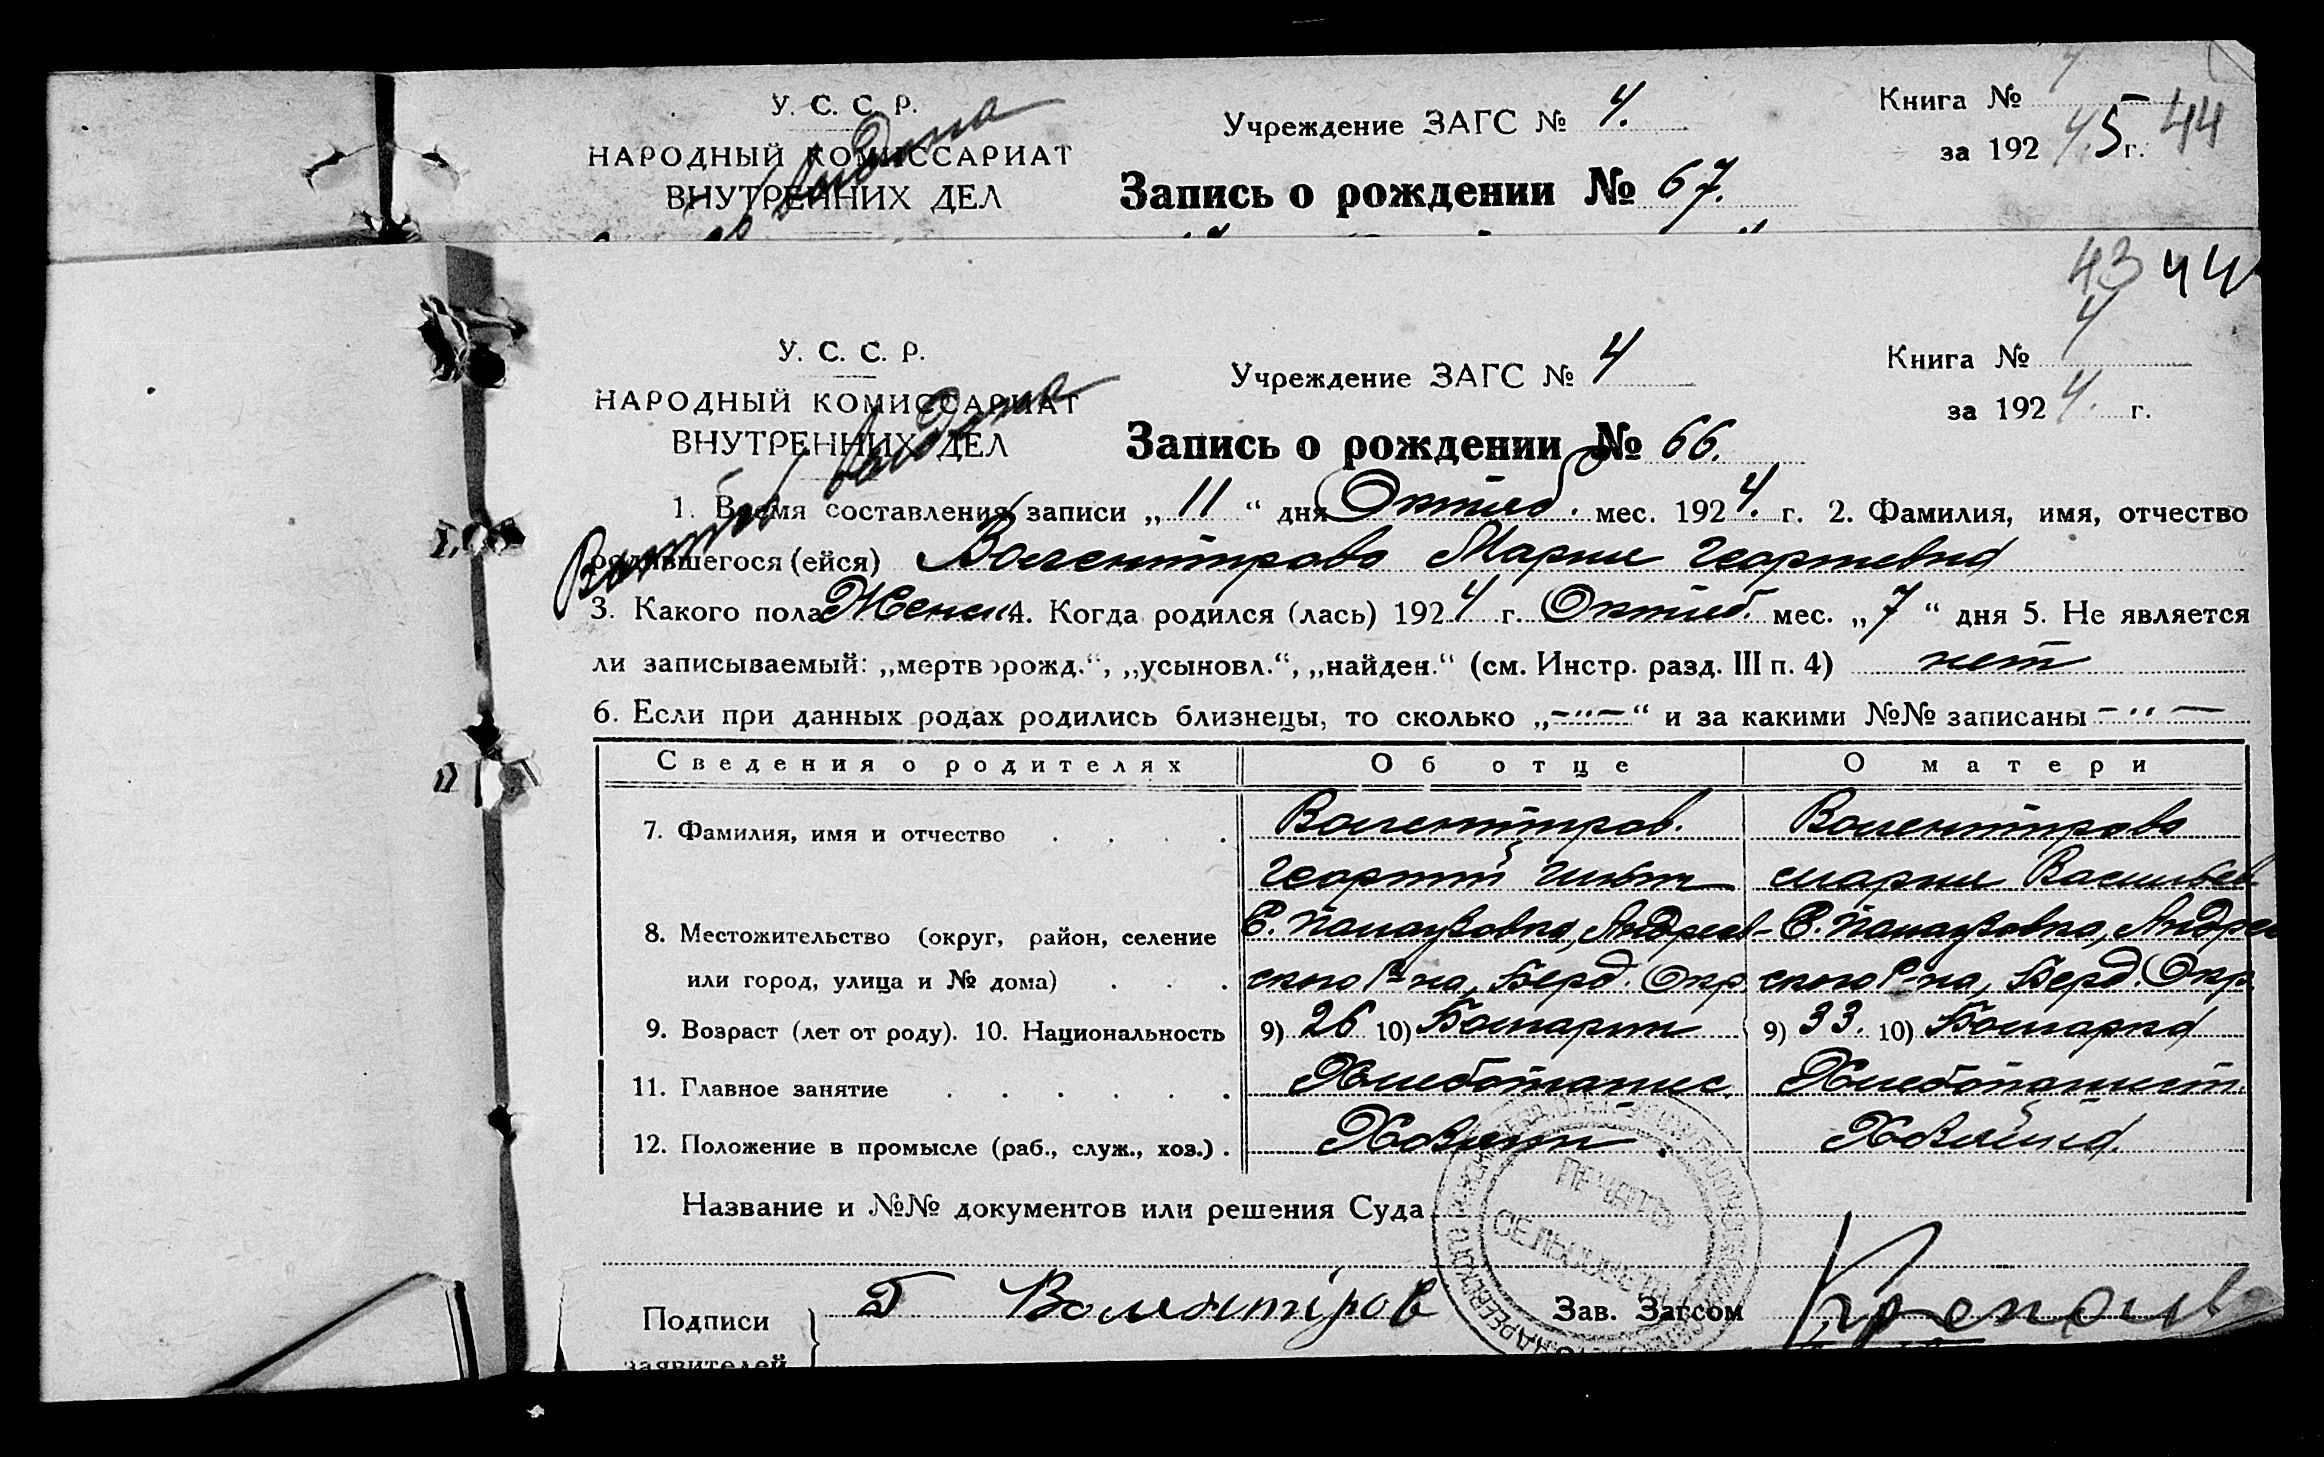 У. С. С. Р.
Учреждение ЗАГС № 4.
Книга № 4
НАРОДНЫЙ КОМИССАРИАТ
за 1924. 5 г. 44
ВНУТРЕННИХ ДЕЛ
Запись о рождении № 67.
43 44
У. С. С. Р.
Учреждение ЗАГС № 4
Книга № 4
НАРОДНЫЙ КОМИССАРИАТ
за 1924. г.
ВНУТРЕННИХ ДЕЛ
Запись о рождении № 66.
1. Время составления записи „ 11 “ дня Октяб. мес. 1924. г. 2. Фамилия, имя, отчество
родившегося (ейся) Волентирова Мария Георгиевна
3. Какого пола Женск 4. Когда родился (лась) 1924 г. Октяб. мес. „ 7 “ дня 5. Не является
ли записываемый: „мертворожд.“, „усыновл.“, „найден.“ (см. Инстр. разд. III п. 4) нет
6. Если при данных родах родились близнецы, то сколько „-"-“ и за какими №№ записаны -"-
Сведения о родителях Об отце О матери
7. Фамилия, имя и отчество . . . . Волентиров. Волентирова
Георгий Мария Васильев
8. Местожительство (округ, район, селение С. Палаузовка, Андреев- С. Палаузовка, Андреев
или город, улица и № дома) . . . ского Р-на, Берд. Окр. ского Р-на, Берд. Окр.
9. Возраст (лет от роду). 10. Национальность 9) 26 10) Болгарин 9) 33. 10) Болгарка
11. Главное занятие . . . . . . Хлебопашес. Хлебопашест.
12. Положение в промысле (раб., служ., хоз.) . Хозяин. Хозяйка.
Название и №№ документов или решения Суда
ПЕЧАТЬ
СЕЛЬСОВЕТА
Подписи
заявителей
Г Волентіров
Зав. Загсом